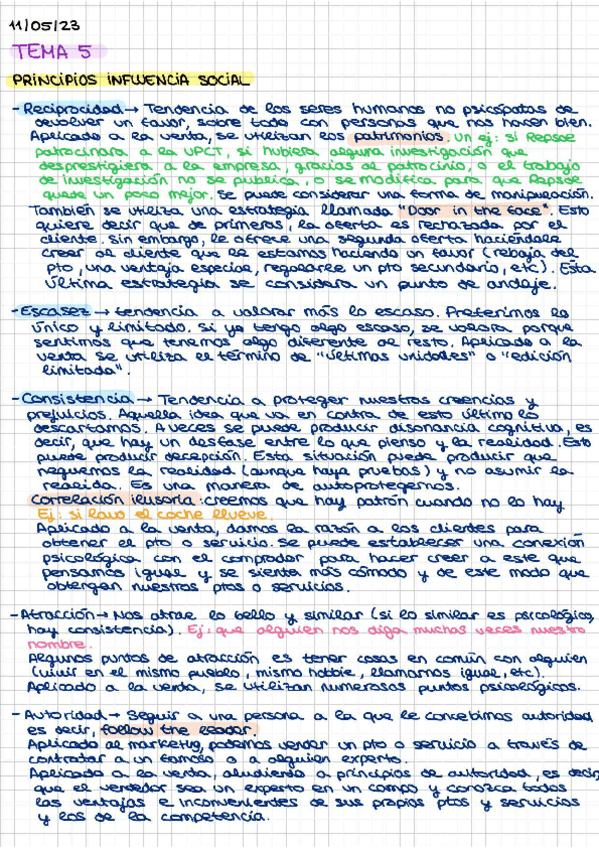 11/05/23
TEMA 5
PRINCIPIOS INFLUENCIA SOCIAL
- Reciprocidad → Tendencia de los seres humanos no psicópatas de
devolver un favor, sobre todo con personas que nos hacen bien.
Aplicado a la venta, se utilizan los patrimonios. Un ej: si Repsol
patrocinara a la UPCT, si hubiera alguna investigación que
desprestigiera a la empresa, gracias al patrocinio, o el trabajo
de investigación no se publica, o se modifica para que Repsol
quede un poco mejor. Se puede considerar una forma de manipulación.
También se utiliza una estrategia llamada "Door in the face". Esto
quiere decir que de primeras, la oferta es rechazada por el
cliente. Sin embargo, le ofrece una segunda oferta haciéndole
creer al cliente que le estamos haciendo un favor (rebaja del
pto, una ventaja especial, regalarle un pto secundario, etc). Esta
última estrategia se considera un punto de anclaje.
- Escasez → tendencia a valorar más lo escaso. Preferimos lo
único y limitado. Si yo tengo algo escaso, se valora porque
sentimos que tenemos algo diferente al resto. Aplicado a la
venta se utiliza el término de "últimas unidades" o "edición
limitada".
- Consistencia → Tendencia a proteger nuestras creencias y
prejuicios. Aquella idea que va en contra de esto último lo
descartamos. A veces se puede producir disonancia cognitiva, es
decir, que hay un desfase entre lo que pienso y la realidad. Esto
puede producir decepción. Esta situación puede producir que
neguemos la realidad (aunque haya pruebas) y no asumir la
realida. Es una manera de autoprotegernos.
Correlación ilusoria: creemos que hay patrón cuando no lo hay
Ej: si lavo el coche llueve.
Aplicado a la venta, damos la razón a los clientes para
obtener el pto o servicio. Se puede establecer una conexión
psicológica con el comprador para hacer creer a este que
pensamos igual y se sienta más cómodo y de este modo que
obtengan nuestros ptos o servicios.
- Atracción → Nos atrae lo bello y similar (si lo similar es psicológico,
hay consistencia). Ej: que alguien nos diga muchas veces nuestro
nombre.
Algunos puntos de atracción es tener cosas en común con alguien
(vivir en el mismo pueblo, mismo hobbie, llamarnos igual, etc).
Aplicado a la venta, se utilizan numerosos puntos psicológicos.
- Autoridad → Seguir a una persona a la que le concebimos autoridad,
es decir, follow the leader.
Aplicado al marketing, podemos vender un pto o servicio a través de
contratar a un famoso o a alguien experto.
Aplicado a la venta, aludiendo a principios de autoridad, es decir
que el vendedor sea un experto en un campo y conozca todos
las ventajas e inconvenientes de sus propios ptos y servicios
y los de la competencia.